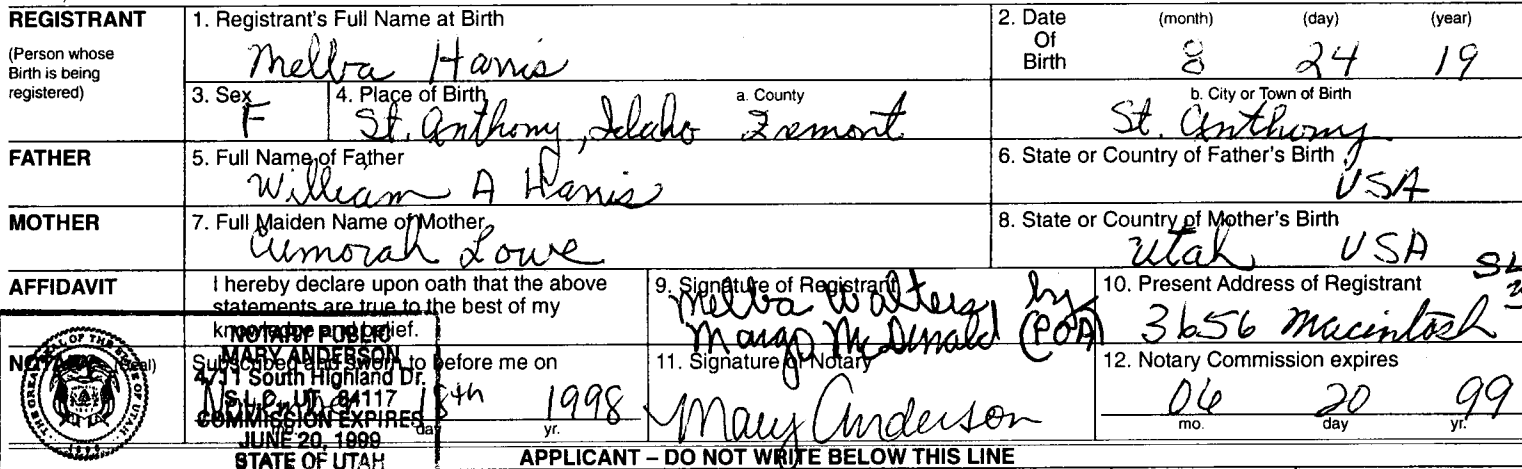 REGISTRANT
(Person whose Birth is being registered)
1. Registrant's Full Name at Birth
Melba Harris
2. Date Of Birth
(month) (day) (year)
8 24 19
3. Sex
F
4. Place of Birth
a. County
St. Anthony, Idaho Fremont
b. City or Town of Birth
St. Anthony
FATHER
5. Full Name of Father
William A Harris
6. State or Country of Father's Birth
USA
MOTHER
7. Full Maiden Name of Mother
Cumorah Lowe
8. State or Country of Mother's Birth
Utah USA
AFFIDAVIT
I hereby declare upon oath that the above
statements are true to the best of my
knowledge and belief.
9. Signature of Registrant
Melba Walters, by
Margo McDonald (POA)
10. Present Address of Registrant
3656 Macintosh
NOTARY (Seal)
Subscribed and sworn to before me on
November 18th 1998
day yr.
NOTARY PUBLIC
MARY ANDERSON
4711 South Highland Dr.
S.L.C., UT. 84117
COMMISSION EXPIRES
JUNE 20, 1999
STATE OF UTAH
THE GREAT SEAL OF THE STATE OF UTAH
11. Signature of Notary
Mary Anderson
12. Notary Commission expires
06 20 99
mo. day yr.
APPLICANT – DO NOT WRITE BELOW THIS LINE